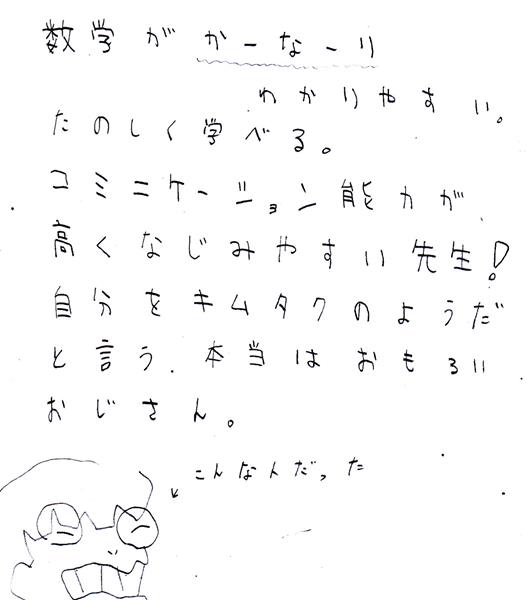 数学がかーなーり
わかりやすい。
たのしく学べる。
コミニケーション能力が
高くなじみやすい先生!
自分をキムタクのようだ
と言う。本当はおもろい
おじさん。
こんなんだった